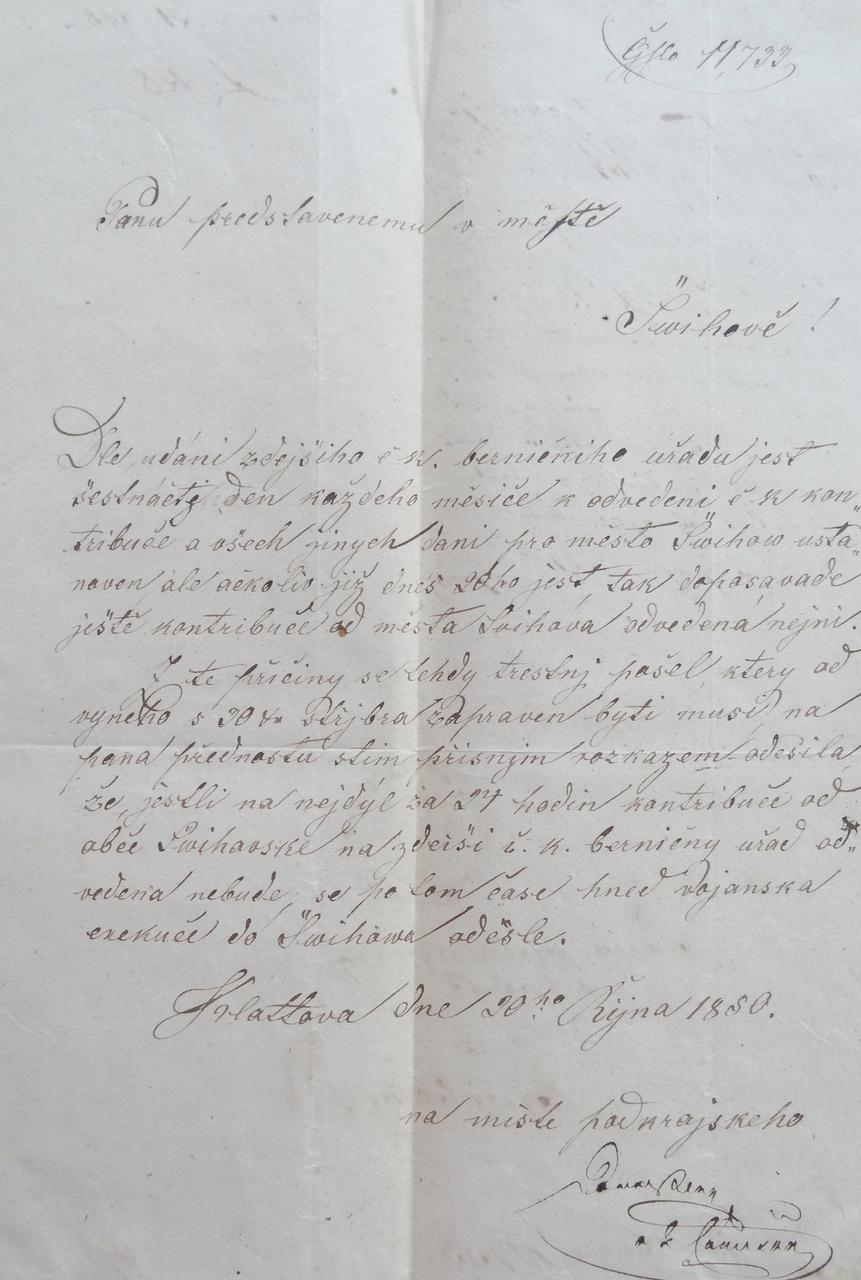 Čjslo 11,733
Panu představenemu v městě
Šwihově!
Dle udáni zdejšiho c k. berničkiho uřadu jest
šestnáctj den každeho měsice k odvedeni c k kon„
tribuce a všech jinych dani pro město Šwihow usta„
noven ale ačkoliv již dnes 20ho jest, tak doposavade
ještě kontribuce od města Svihova odvedena nejni.
Z te přičiny se tehdy trestnj posel, ktery od
vyneho s 20 kr střjbra zapraven byti musi na
pana přednostu stim přisnjm rozkazem odesila
že, jestli na nejdýl za 24 hodin kontribuce od
obce Swihovske na zdejši c. k. berničny uřad od„
vedena nebude, se po tom čase hned vojanska
exekuce do Šwihowa odešle.
Klattova dne 20ho Řijna 1850.
na miste podkrajskeho